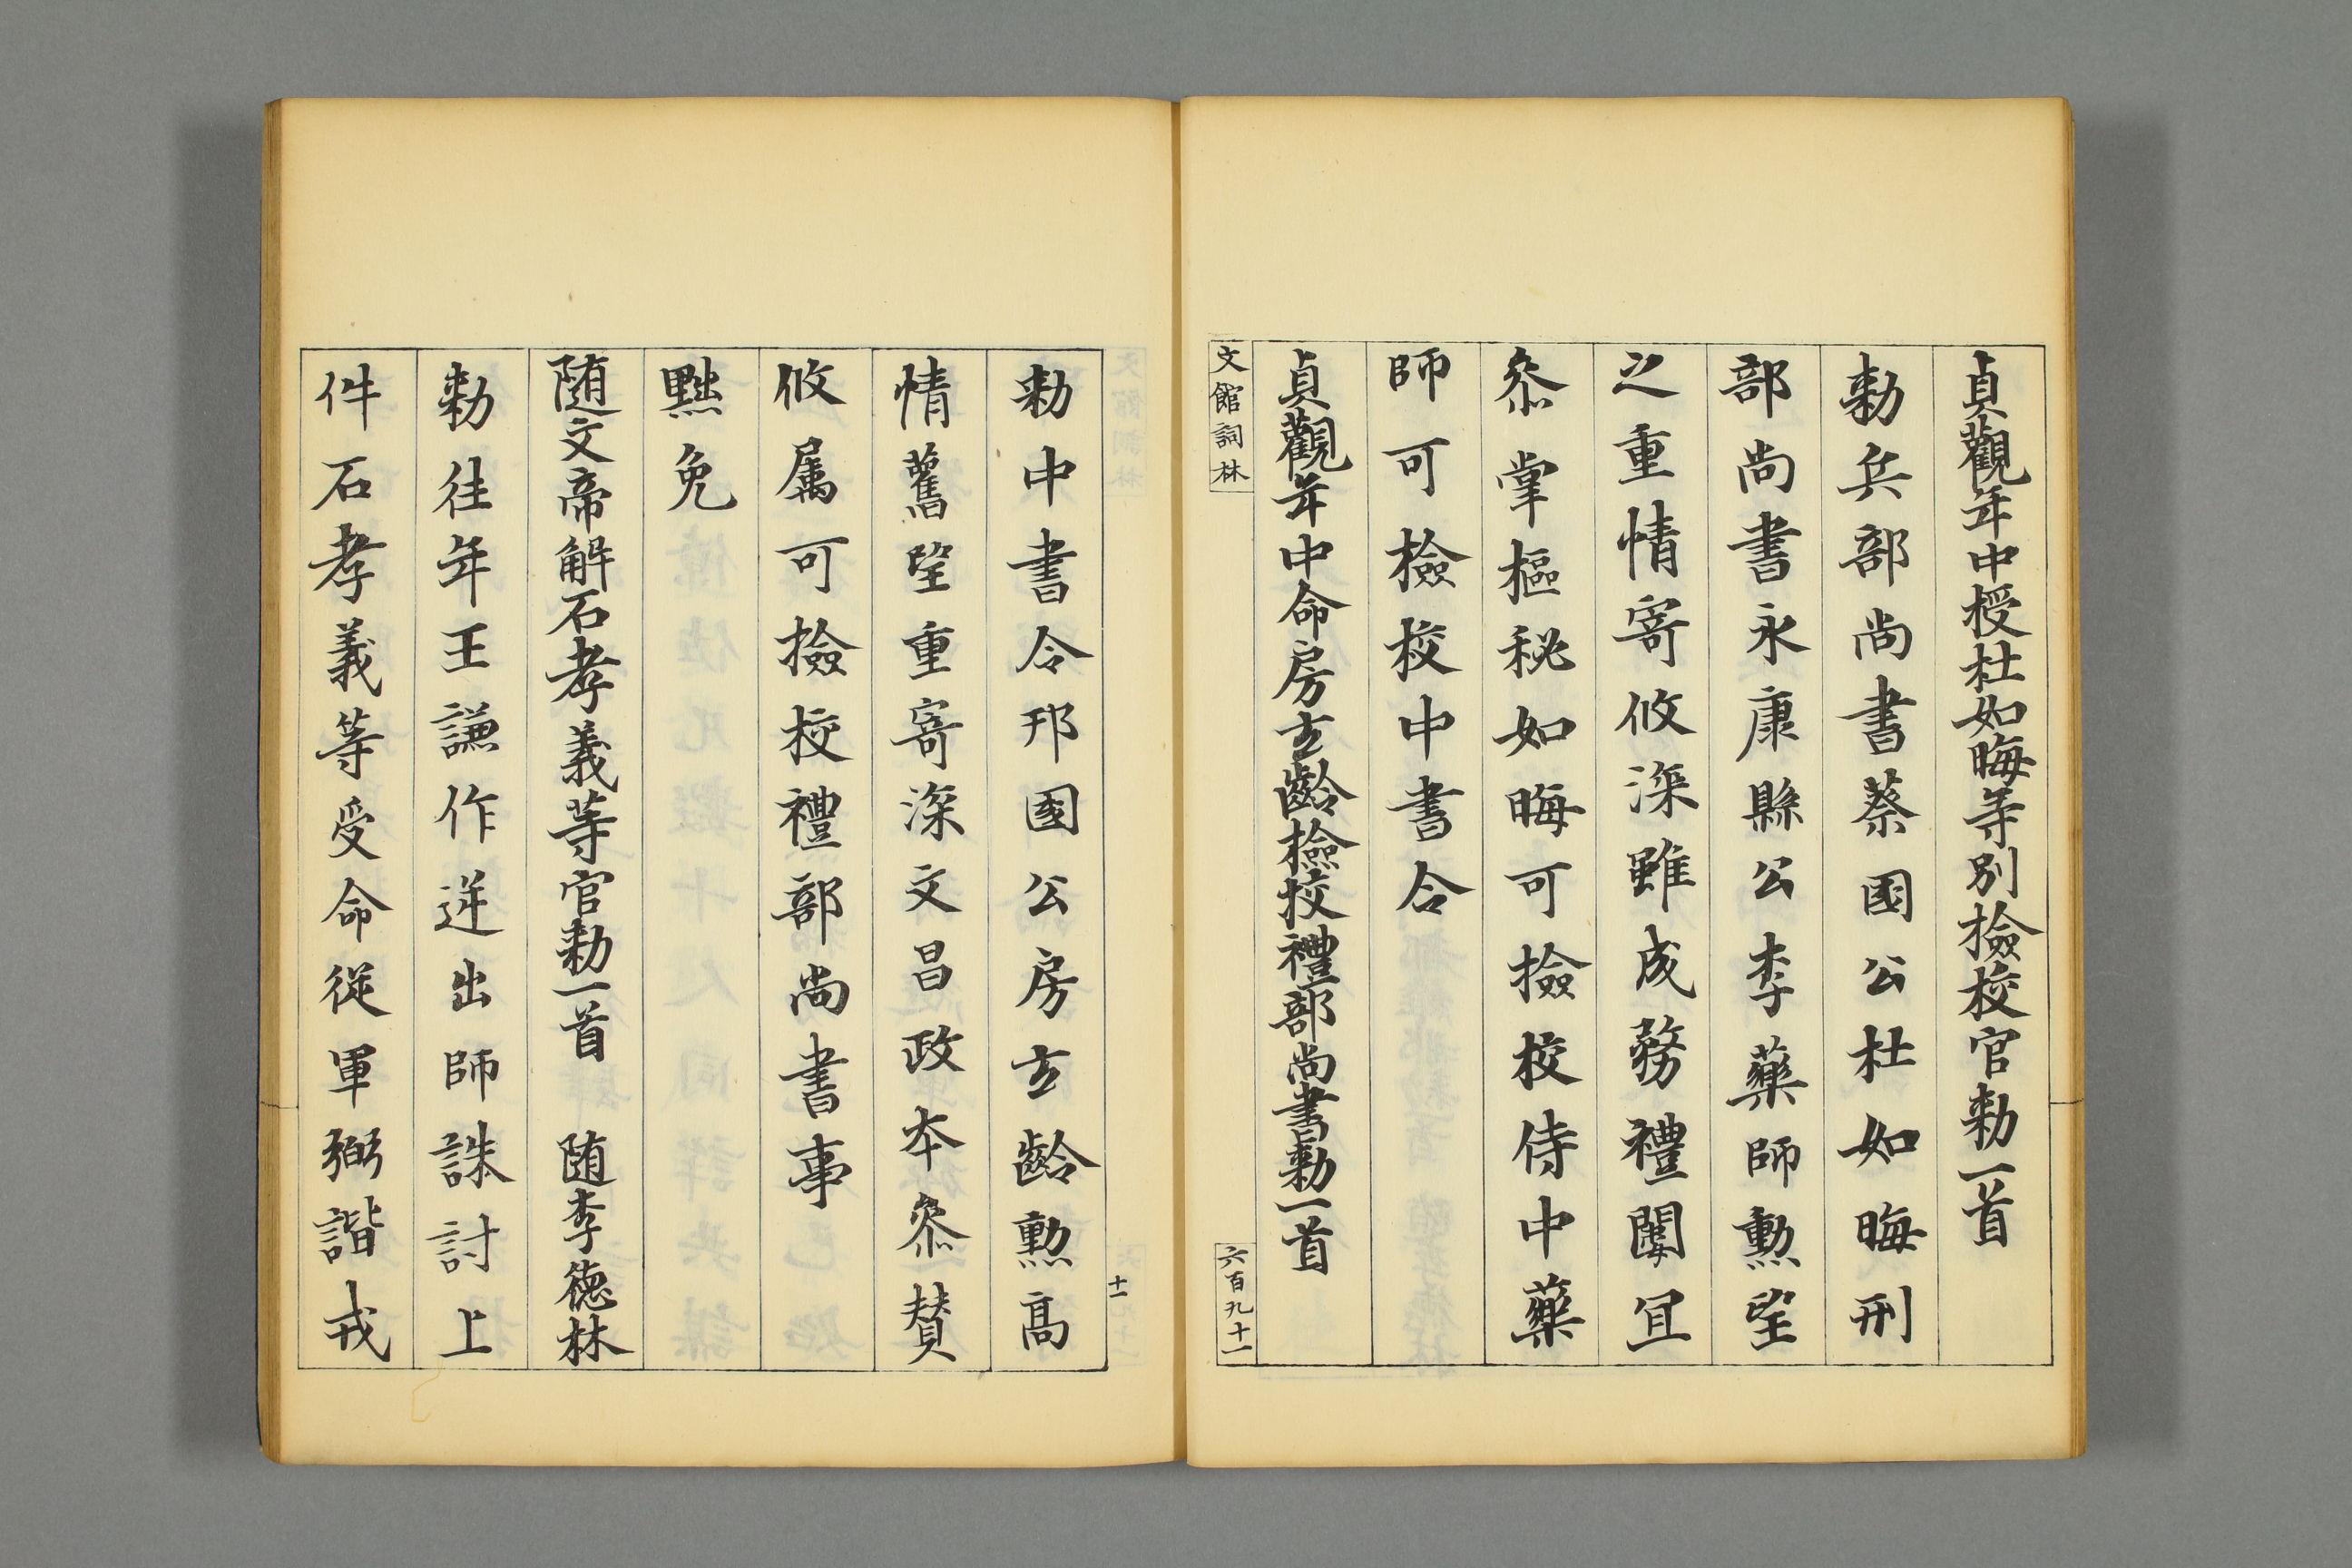 貞觀年中授杜如晦等別撿校官勅一首
勅兵部尚書蔡國公杜如晦刑
部尚書永康縣公李藥師勲望
之重情寄攸深雖成務禮闈宜
叅掌樞秘如晦可撿校侍中藥
師可檢校中書令
貞觀年中命房玄齡檢校禮部尚書勅一首
文館詞林
六百九十一
十一
勅中書令邦國公房玄齡勲高
情舊望重寄深文昌政本叅賛
攸属可撿校禮部尚書事
黜免
随文帝解石孝義等官勅一首 随李德林
勅往年王謙作逆出師誅討上
件石孝義等受命從軍弼諧戎